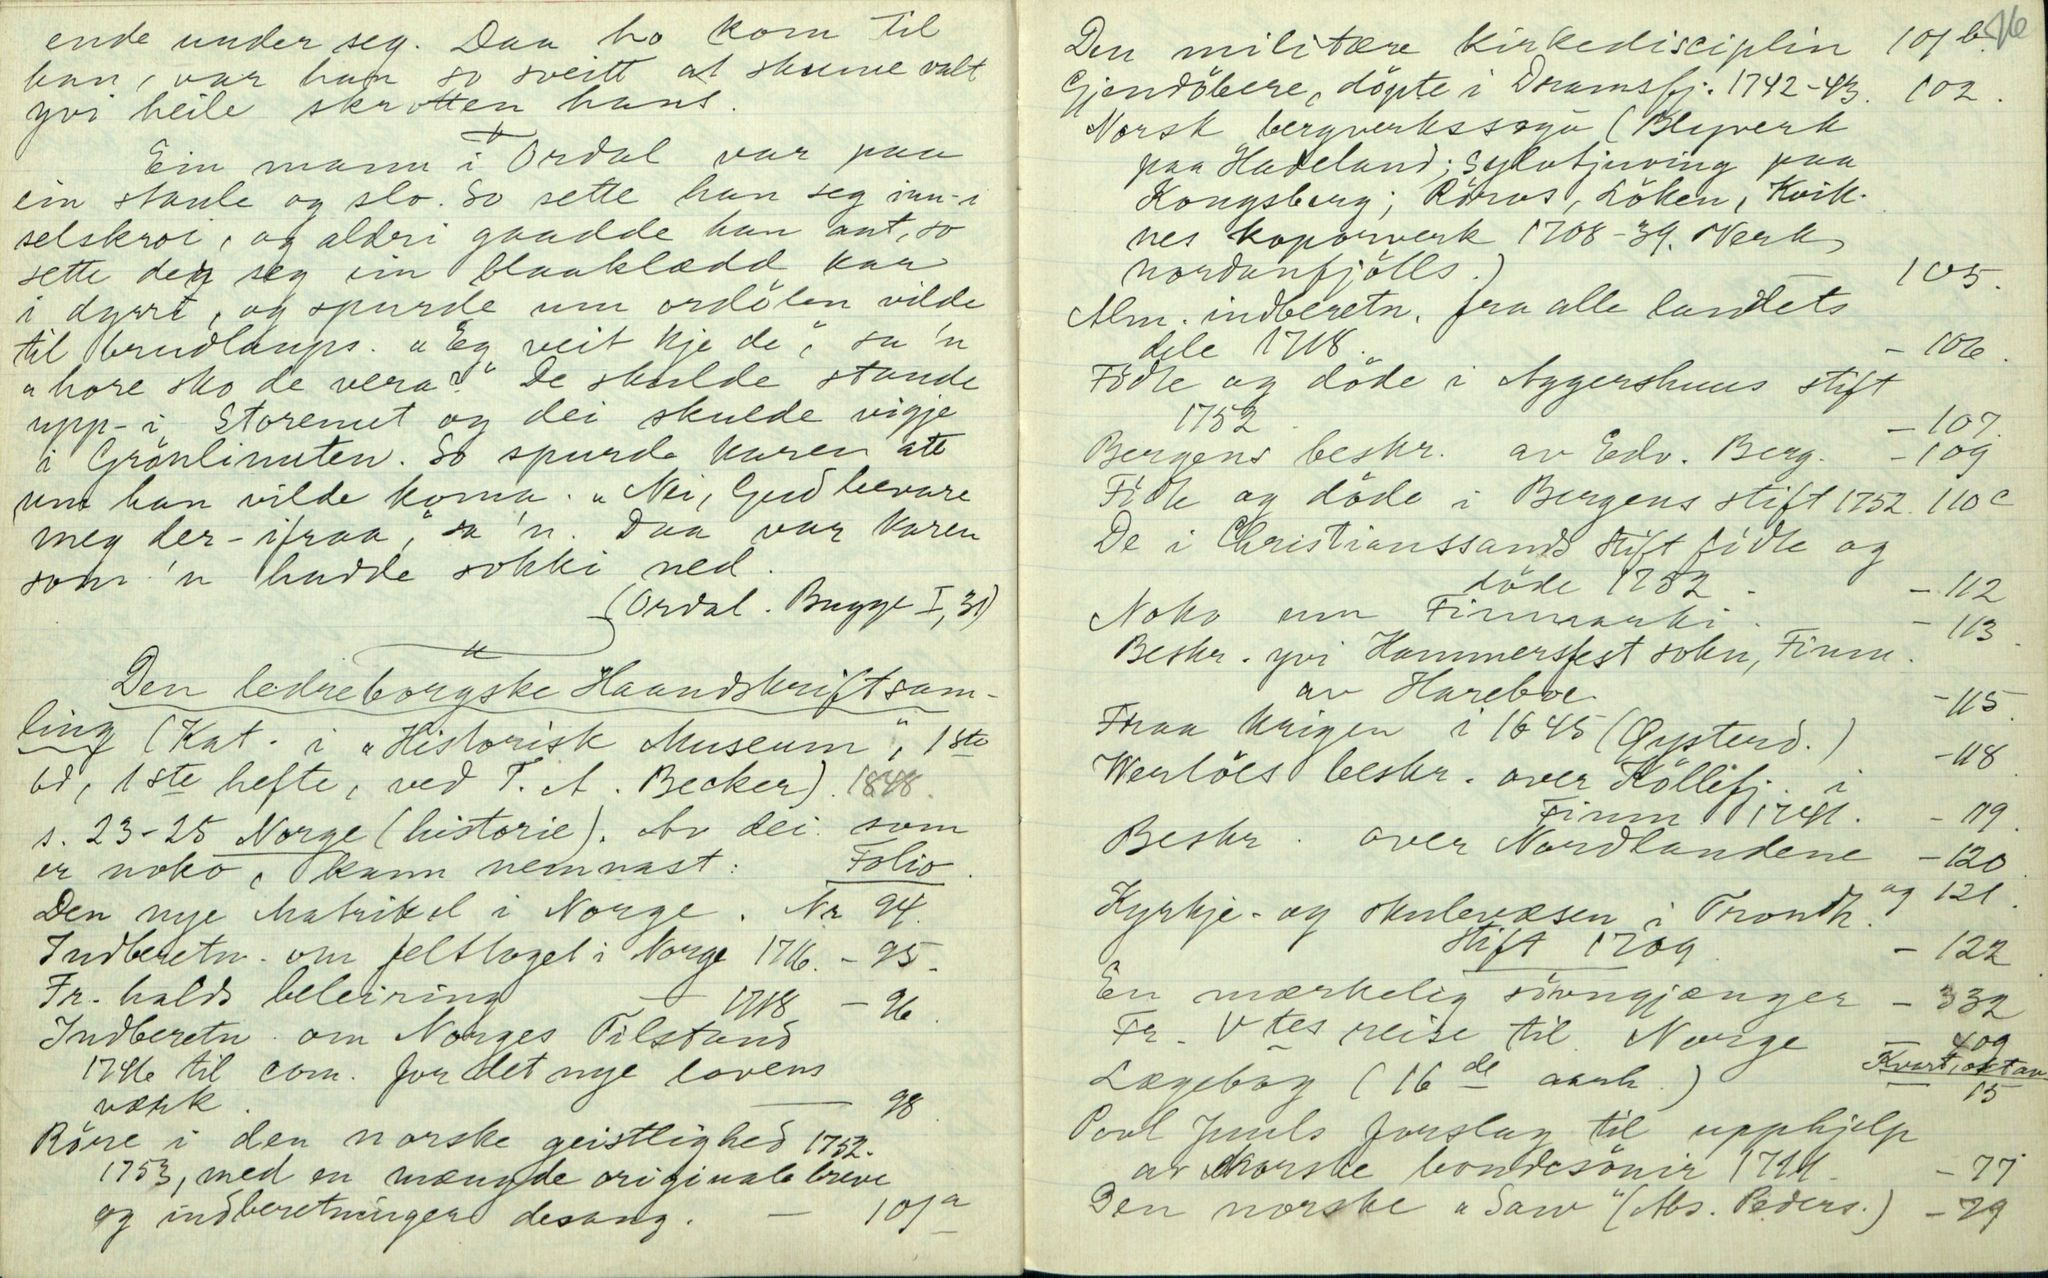 ende under seg. Daa ho kom til
han, var han so sveitt at skume valt
yvi heile skrotten hans.
Ein mann i Ordal var paa
ein staule og slo. So sette han seg inn-i
selskroi, og aldri gaadde han ant, so
sette dei seg ein blaaklædd kar
i dyrri, og spurde um ordölen vilde
til brudlaups. "Eg veit kje de", sa 'n
"hore sko de vera?" De skulde stande
upp-i Storenut og dei skulde vigje
i Grönlinuten. So spurde karen ate
um han vilde koma. "Nei, Gud bevare
meg der-ifraa," sa 'n. Daa var karen
som 'n hadde sokki ned.
(Ordal. Bugge I, 31)
Den ledreborgske Haandskriftsam-
ling (Kat. i "Historisk Museum", 1ste
bd, 1ste hefte, ved T. A. Becker). 1848.
s. 23-25 Norge (historie). Av dei som
er noko, kann nemnast: Folio.
Den nye Matrikel i Norge. Nr 94.
Indberetn. om felttoget i Norge 1716. - 95.
Fr.halds beleiring — 1718 - 96.
Indberetn. om Norges Tilstand
1746 til com. for det nye lovens
værk. — 98.
Röre i den norske geistlighed 1752.
1753, med en mængde originale breve
og indberetninger desang. — 101a
Den militære kirkedisciplin 101b. 16
Gjendöbere, döpte i Dramsfj. 1742-43. 102.
Norsk bergverkssogu (Blyverk
paa Hadeland; Sylvtjuving paa
Kongsberg; Röros, Löken, Kvik-
nes koparverk 1708-39. Verk
nordanfjölls.) — 105.
Alm. indberetn. fra alle landets
dele 1718. - 106.
Födte og döde i Aggershuus stift
1752. - 107.
Bergens beskr. av Edv. Berg. - 109
Födte og döde i Bergens stift 1752. 110c
De i Christianssands stift födte og
döde 1752. - 112
Noko um Finnmarki. - 113.
Beskr. yvi Hammersfest sokn, Finm.
av Hareboe. - 115.
Fraa krigen i 1645 (Øysterd.) - 118.
Werlöes beskr. over Köllefj. i
Finm 1741. - 119.
Beskr. over Nordlandene - 120
og 121.
Kyrkje- og skulevæsen i Trondh.
stift 1709 - 122
En mærkelig sövngjænger - 332
Fr. Vtes reise til Norge — 409
Kvart, oktav
Lægebog (16de aarh.) — 15
Povl Juuls forslag til upphjelp
av norske bondesönir 1721. - 77
Den norske "Saw" (Abs. Peders.) - 79